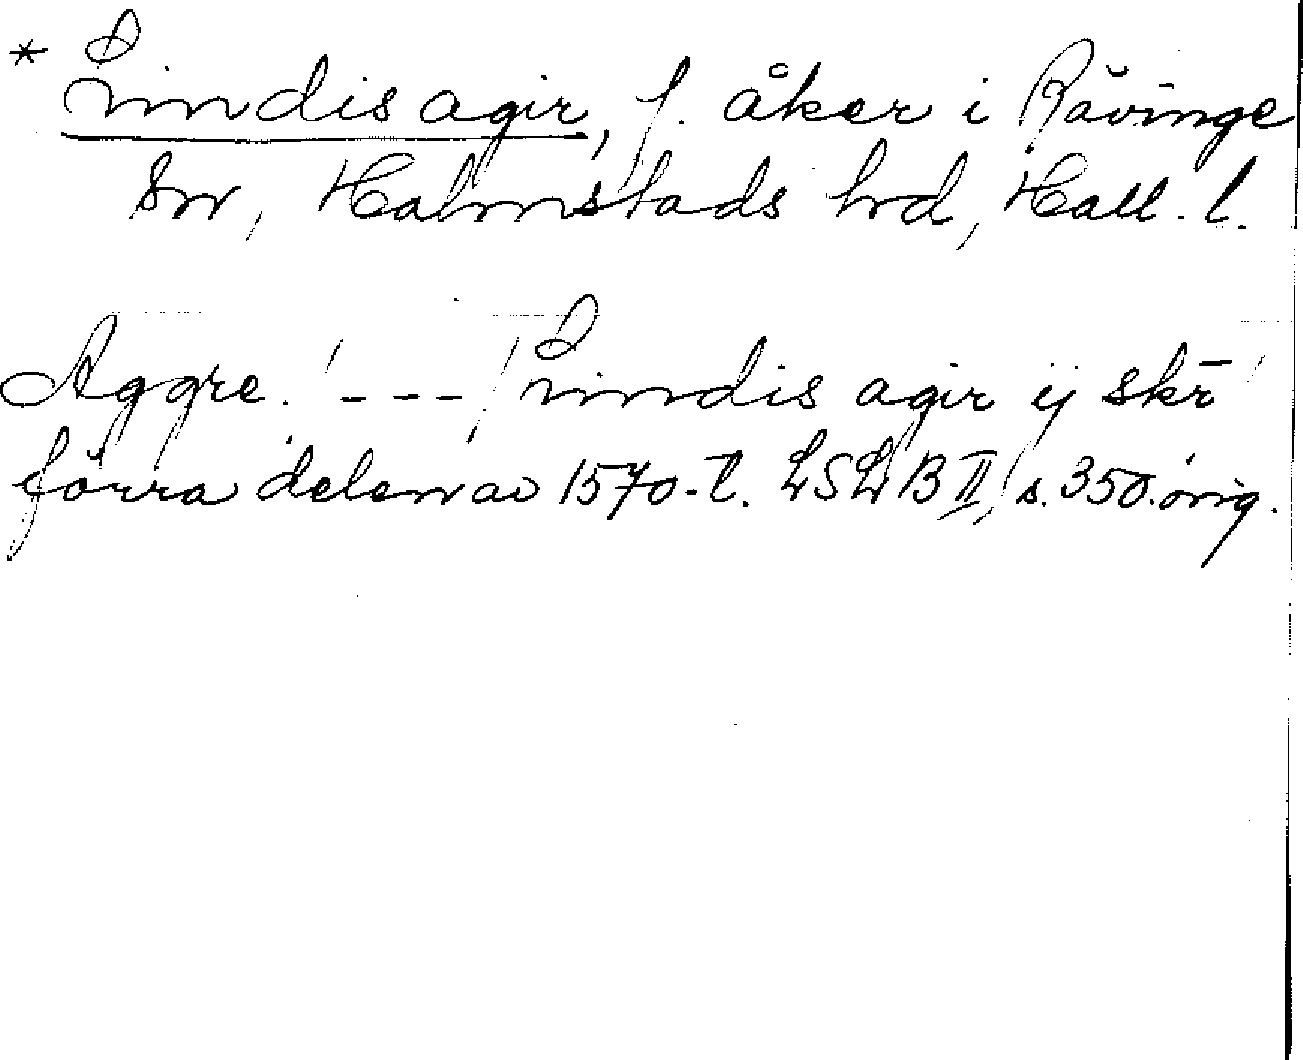 * agir, f. åker i Rävinge
sn, Halmstads hrd, Hall. l.
Aggre: / --- / agir ij skr̄
förra delen av 1570-t. LSLB II, s. 350. orig.